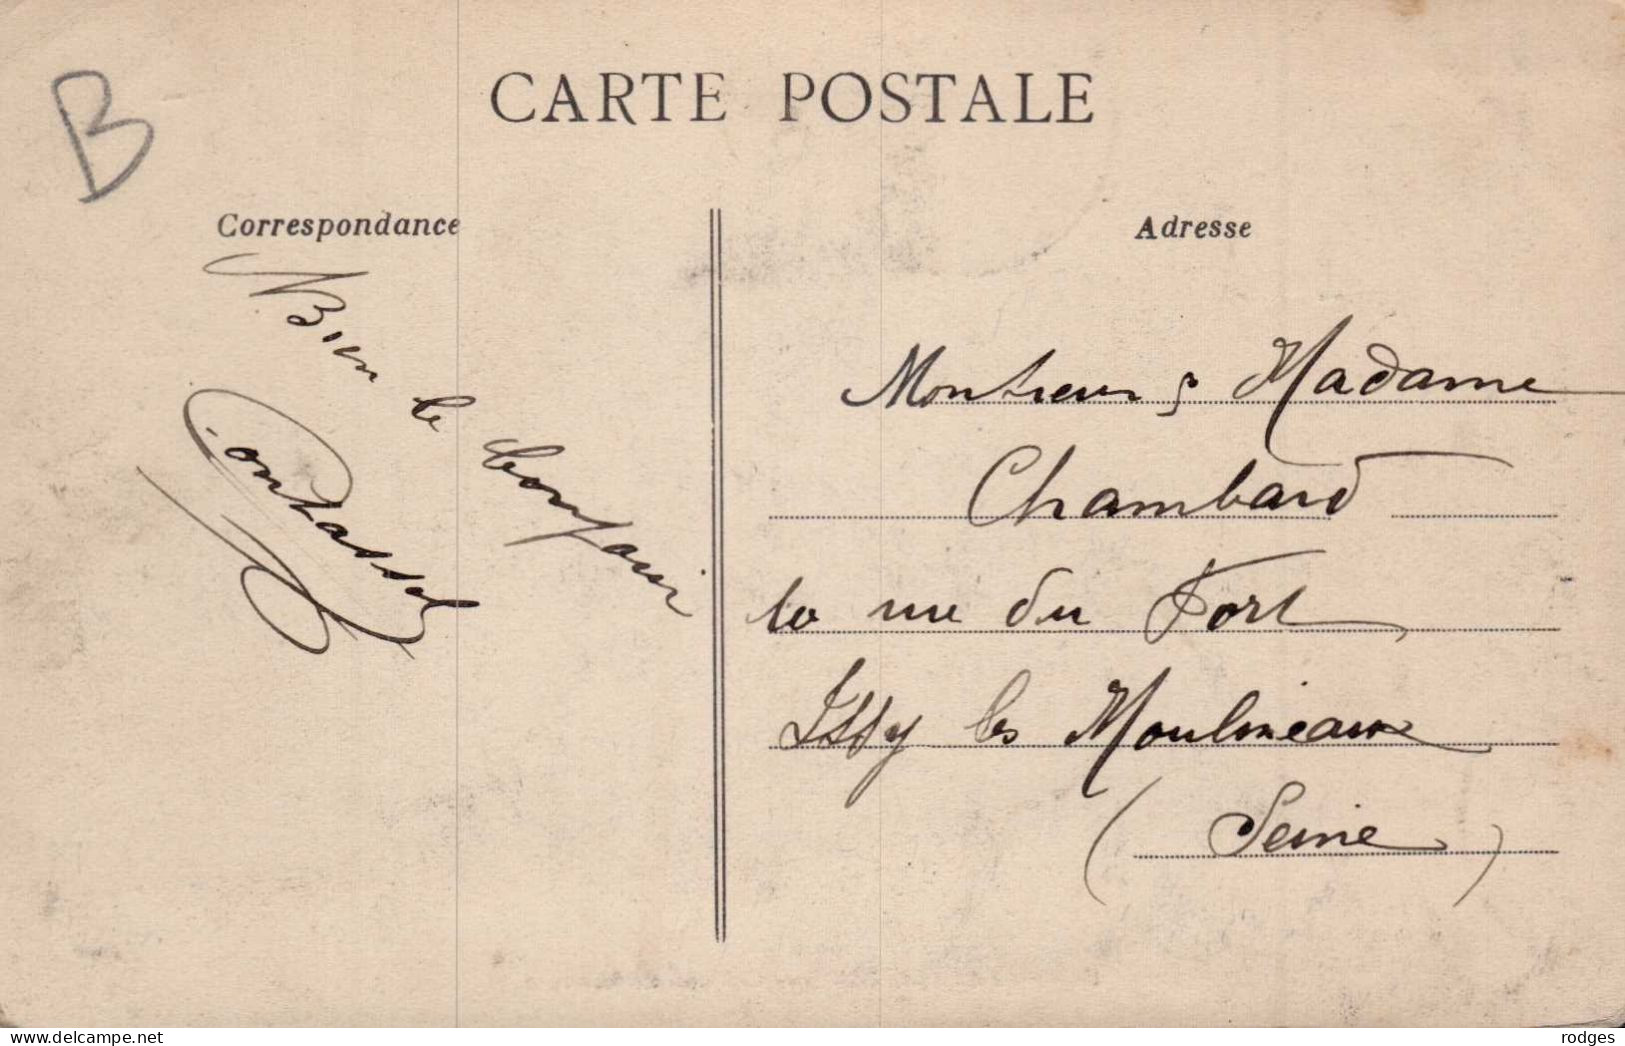 B
CARTE POSTALE
Correspondance
Bien le
bonjour
Adresse
Monsieur & Madame
Chambard
10 rue du Fort
Issy les Moulineaux
(Seine)
www.delcampe.net
rodges